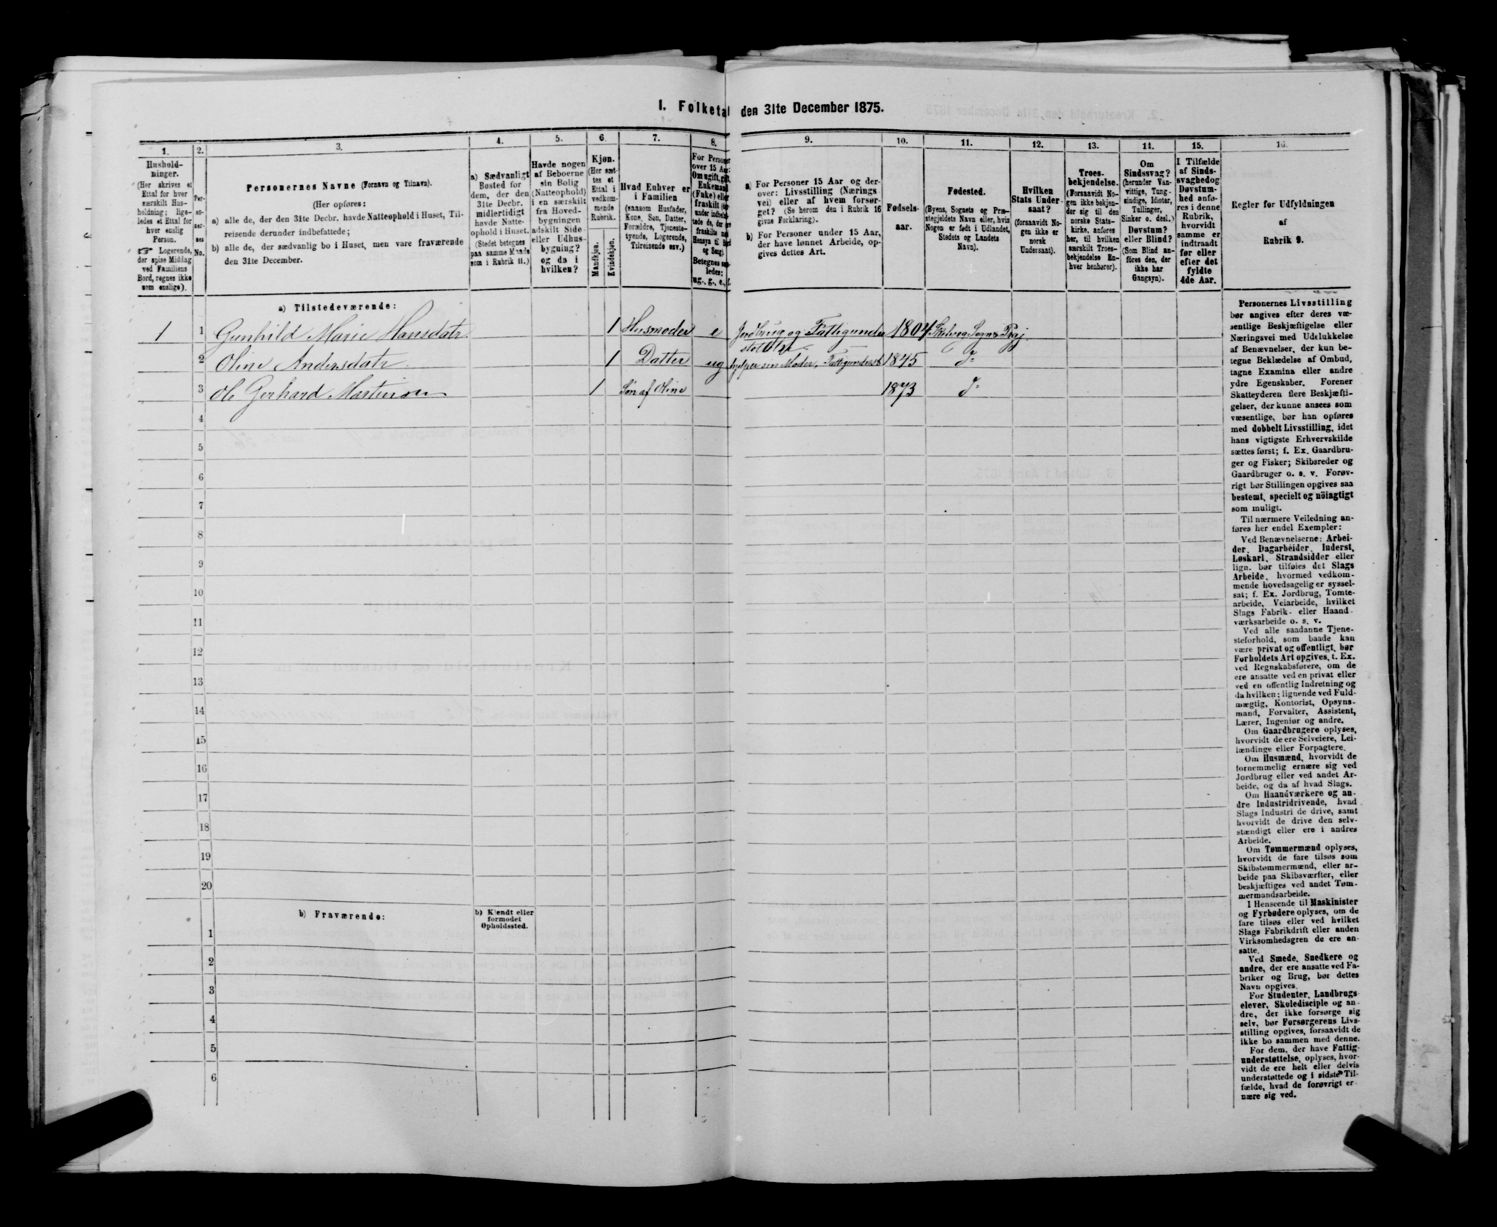 I. Folketal den 31te December 1875.
1. 2. 3. 4. 5. 6. 7. 8. 9. 10. 11. 12. 13. 14. 15. 16.
Hushold-
ninger.
(Her skrives et
Ettal for hver
særskilt Hus-
holdning; lige-
ledes et Ettal for
hver enslig
Person.
Logerende,
der spise Middag
ved Familiens
Bord, regnes ikke
som enslige).
Per-
so-
ner-
nes
No.
Personernes Navne (Fornavn og Tilnavn).
(Her opføres:
a) alle de, der den 31te Decbr. havde Natteophold i Huset, Til-
reisende derunder indbefattede;
b) alle de, der sædvanlig bo i Huset, men vare fraværende
den 31te December.
a) Sædvanligt
Bosted for
dem, der den
31te Decbr.
midlertidigt
havde Natte-
ophold i Huset.
(Stedet betegnes
paa samme Maade
som i Rubrik 11.)
Havde nogen
af Beboerne
sin Bolig
(Natteophold)
i en særskilt
fra Hoved-
bygningen
adskilt Side-
eller Udhus-
bygning?
og da i
hvilken?
Kjøn.
(Her sæt-
tes et
Ettal i
vedkom-
mende
Rubrik.
Mandkjøn.
Kvindekjøn.
Hvad Enhver er
i Familien
(saasom Husfader,
Kone, Søn, Datter,
Forældre, Tjeneste-
tyende, Logerende,
Tilreisende osv.)
For Personer
over 15 Aar:
Om ugift, gift,
Enkemand
(Enke) eller
fraskilt
Betegnes saa-
ledes:
ug., g., e., f.
a) For Personer 15 Aar og der-
over: Livsstilling (Nærings
vei) eller af hvem forsør-
get? (Se herom den i Rubrik 16
givne Forklaring).
b) For Personer under 15 Aar,
der have lønnet Arbeide, op-
gives dettes Art.
Fødsels-
aar.
Fødested.
(Byens, Sognets og Præ-
stegjeldets Navn eller, hvis
Nogen er født i Udlandet,
Stedets og Landets
Navn).
Hvilken
Stats Under-
saat?
(forsaavidt No-
gen ikke er
norsk
Undersaat).
Troes-
bekjendelse.
(Forsaavidt No-
gen ikke bekjen-
der sig til den
norske Stats-
kirke, anføres
her, til hvilken
særskilt Troes-
bekjendelse En-
hver henhører).
Om
Sindssvag?
(herunder Van-
vittige, Tung-
sindige, Idioter,
Tullinger,
Sinker o. desl.)
Døvstum?
eller Blind?
(Som Blind an-
føres den, der
ikke har
Gangsyn).
I Tilfælde
af Sinds-
svaghed og
Døvstum-
hed anfø-
res i denne
Rubrik,
hvorvidt
samme er
indtraadt
før eller
efter det
fyldte
4de Aar.
Regler for Udfyldningen
af
Rubrik 9.
a) Tilstedeværende:
1 1 Gunhild Marie Hansdatr 1 Husmoder e Jordbrug og Fattigunder 1804
støttelse
2 Oline Andersdatr 1 Datter ug hjelper sin Moder, Fattigunderst 1845 do
3 Ole Gerhard Martinsen 1 Søn af Oline 1873 do
4
5
6
7
8
9
10
11
12
13
14
15
16
17
18
19
20
b) Fraværende:
b) Kjendt eller
formodet
Opholdssted.
1
2
3
4
5
6
Personernes Livsstilling
bør angives efter deres væ-
sentlige Beskjæftigelse eller
Næringsvei med Udelukkelse
af Benævnelser, der kun be-
tegne Beklædelse af Ombud,
tagne Examina eller andre
ydre Egenskaber. Forener
Skatteyderen flere Beskjæfti-
gelser, der kunne ansees som
væsentlige, bør han opføres
med dobbelt Livsstilling, idet
hans vigtigste Erhvervskilde
sættes først; f. Ex. Gaardbru-
ger og Fisker; Skibsreder og
Gaardbruger o. s. v. Forøv-
rigt bør Stillingen opgives saa
bestemt, specielt og nøiagtigt
som muligt.
Til nærmere Veiledning an-
føres her endel Exempler:
Ved Benævnelserne: Arbei-
der, Dagarbeider, Inderst,
Løskarl, Strandsidder eller
lign. bør tilføies det Slags
Arbeide, hvormed vedkom-
mende hovedsagelig er syssel-
sat; f. Ex. Jordbrug, Tomte-
arbeide, Veiarbeide, hvilket
Slags Fabrik- eller Haand-
værksarbeide o. s. v.
Ved alle saadanne Tjene-
steforhold, som baade kan
være privat og offentligt, bør
Forholdets Art opgives, t. Ex.
ved Regnskabsførere, om de
ere ansatte ved en privat eller
ved en offentlig Indretning og
da hvilken; lignende ved Fuld-
mægtig, Kontorist, Opsyns-
mand, Forvalter, Assistent,
Lærer, Ingeniør og andre.
Om Gaardbrugere oplyses,
hvorvidt de ere Selveiere, Lei-
lændinge eller Forpagtere.
Om Husmænd, hvorvidt de
fornemmelig ernære sig ved
Jordbrug eller ved andet Ar-
beide, og da af hvad Slags.
Om Haandværkere og an-
dre Industridrivende, hvad
Slags Industri de drive, samt
hvorvidt de drive den selv-
stændigt eller ere i andres
Arbeide.
Om Tømmermænd oplyses,
hvorvidt de fare tilsøs som
Skibstømmermænd, eller ar-
beide paa Skibsværfter, eller
beskjæftiges ved andet Tøm-
mermandsarbeide.
I Henseende til Maskinister
og Fyrbødere oplyses, om de
fare tilsøs eller ved hvilket
Slags Fabrikdrift eller anden
Virksomhedsgren de ere an-
satte.
Ved Smede, Snedkere og
andre, der ere ansatte ved Fa-
briker og Brug, bør dettes
Navn opgives.
For Studenter, Landbrugs-
elever, Skoledisciple og an-
dre, der ikke forsørge sig
selv, bør Forsørgerens Livs-
stilling opgives, forsaavidt de
ikke bo sammen med denne.
For dem, der have Fattig-
understøttelse, oplyses, hvor-
vidt de ere helt eller delvis
understøttede og i sidste Til-
fælde, hvad de forøvrigt er-
nære sig ved.